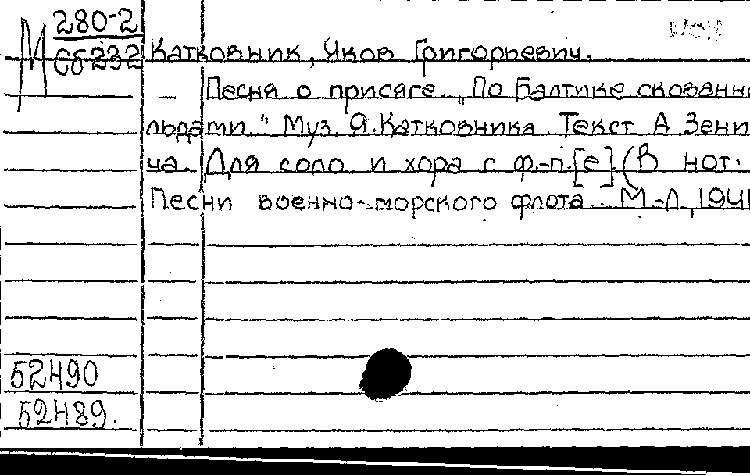 М 280-2
Сб232 Катковник, Яков Григорьевич.
— Песня о присяге. „По Балтике скованн
льдами." Муз. Я.Катковника. Текст А Зени
ча. Для соло и хора с ф-п.[е].(В нот.
Песни военно-морского флота. М.-Л.,1941
52490
52489.